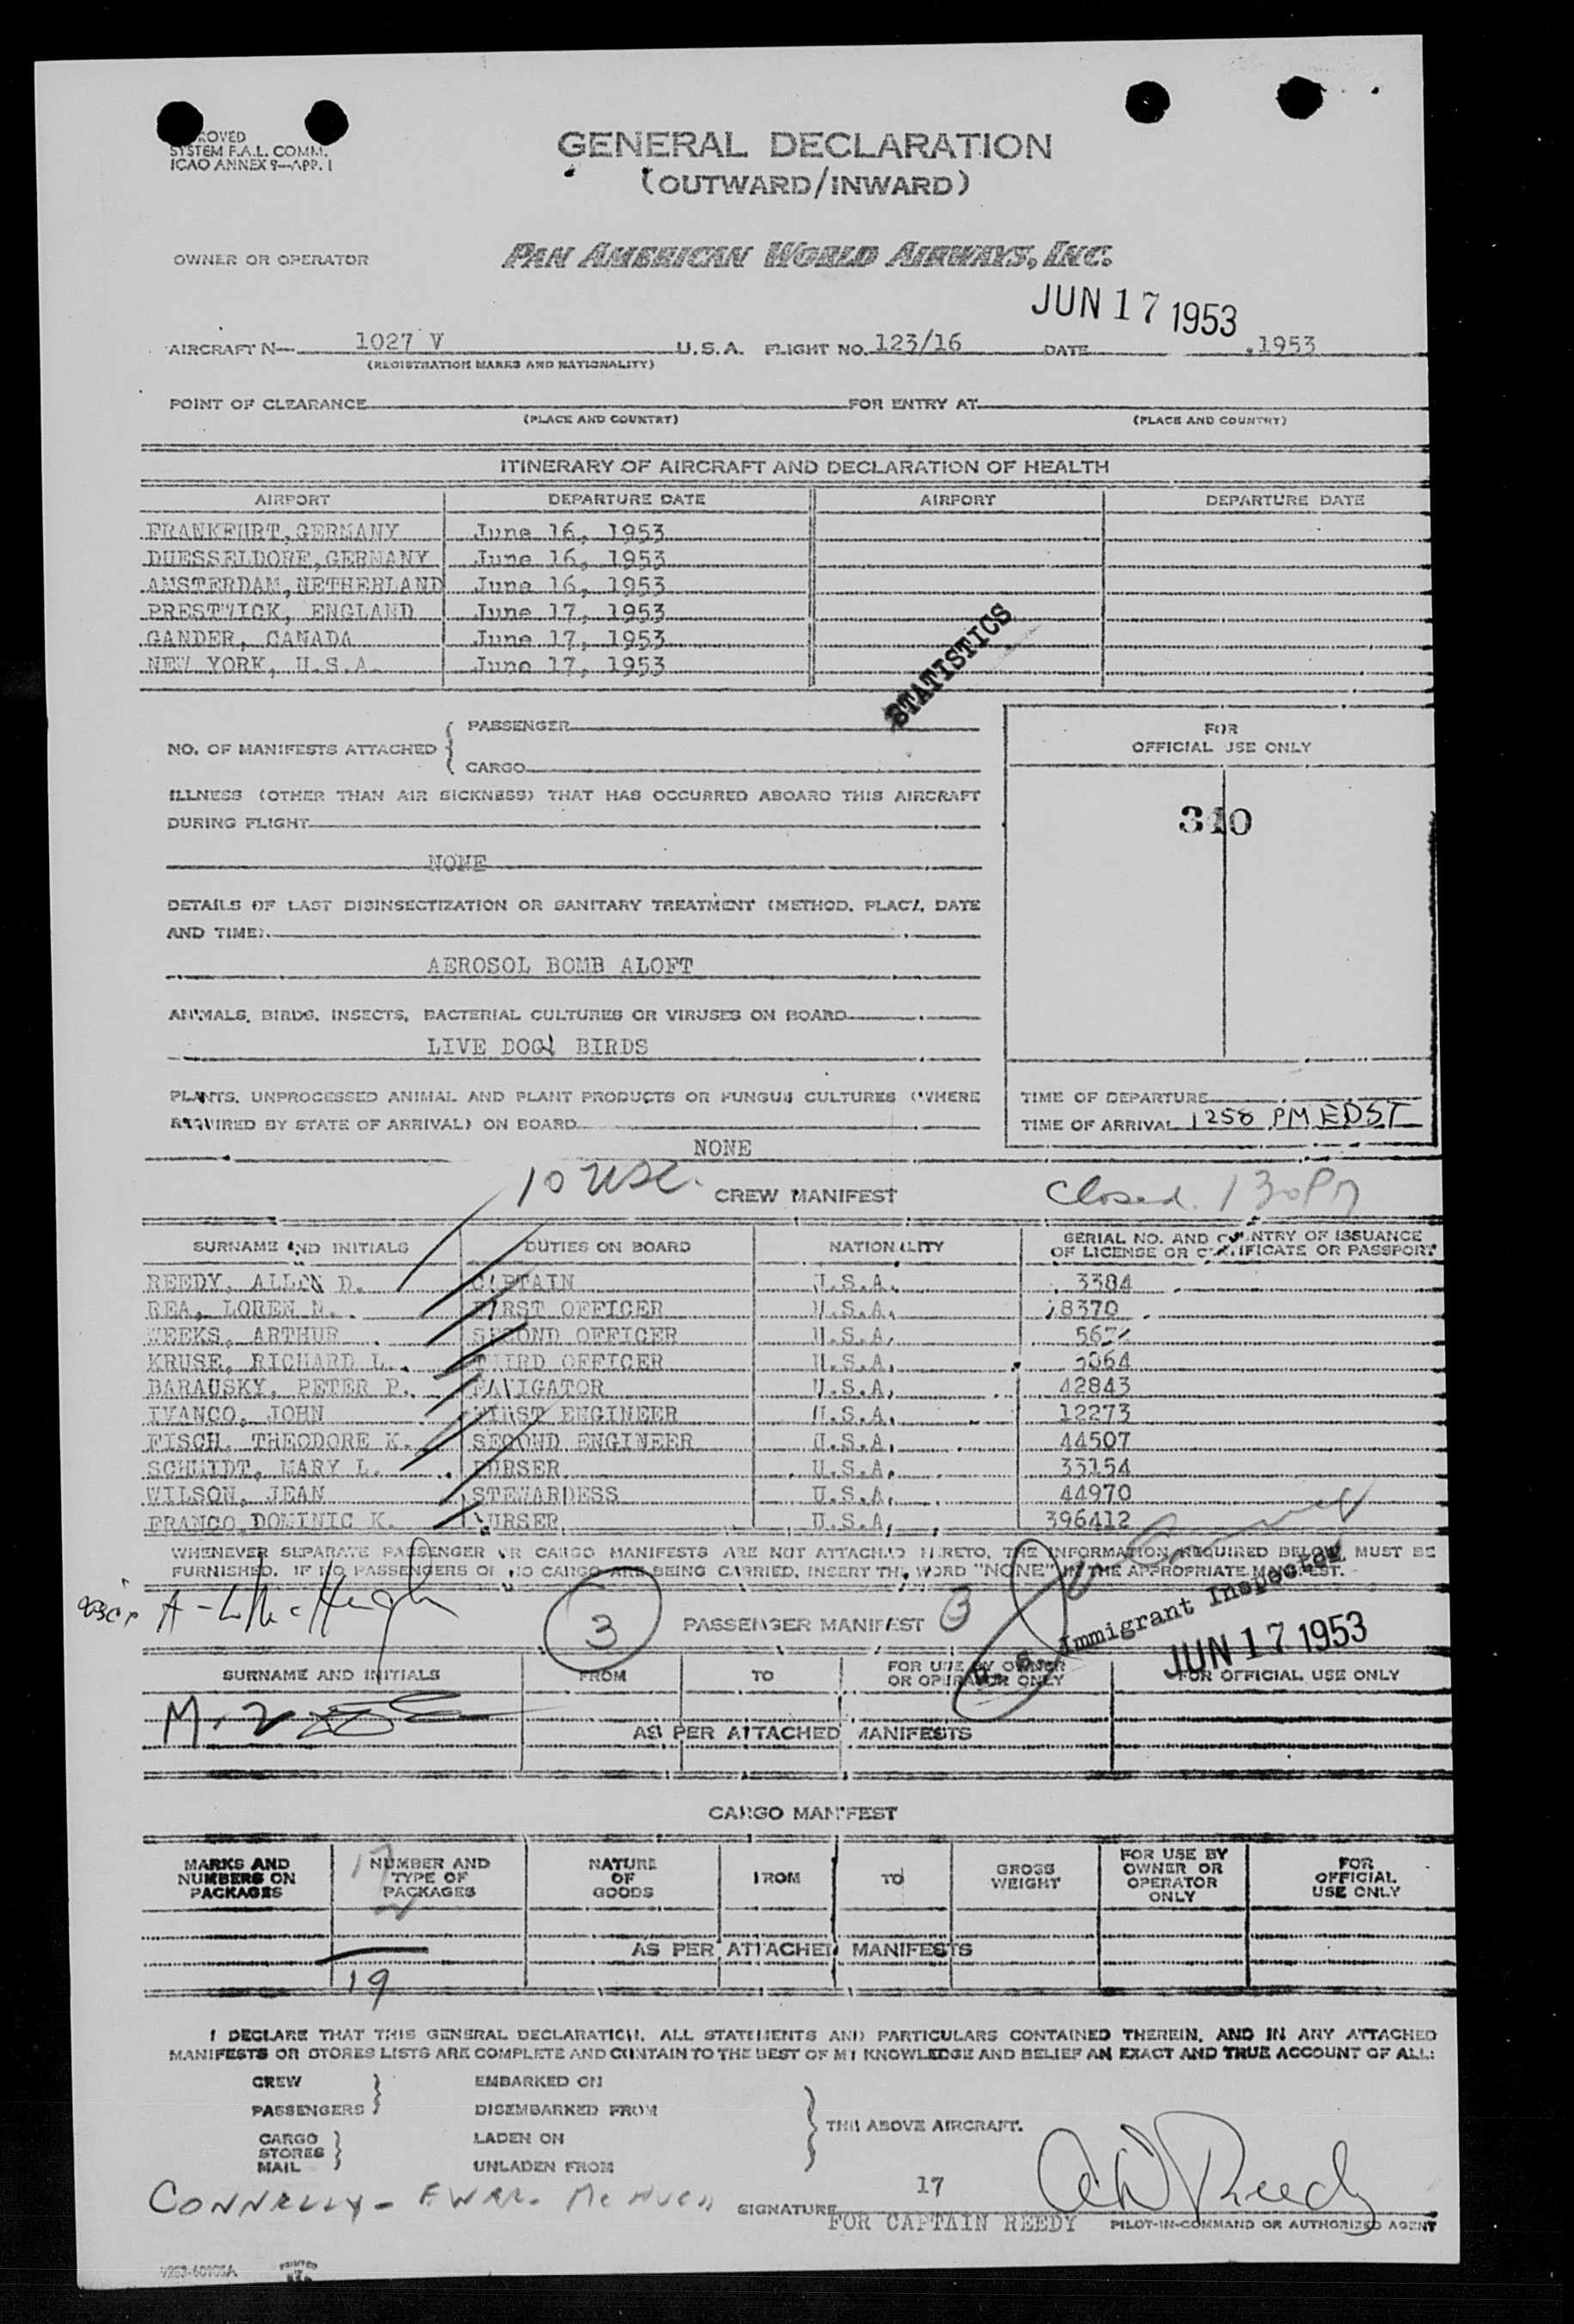 ROVED
SYSTEM F.A.L. COMM.
ICAO ANNEX 9—APP. 1
GENERAL DECLARATION
(OUTWARD/INWARD)
OWNER OR OPERATOR PAN AMERICAN WORLD AIRWAYS, INC.
JUN 17 1953
AIRCRAFT N— 1027 V U.S.A. FLIGHT NO. 123/16 DATE ,1953
(REGISTRATION MARKS AND NATIONALITY)
POINT OF CLEARANCE FOR ENTRY AT
(PLACE AND COUNTRY) (PLACE AND COUNTRY)
ITINERARY OF AIRCRAFT AND DECLARATION OF HEALTH
AIRPORT DEPARTURE DATE AIRPORT DEPARTURE DATE
FRANKFURT, GERMANY June 16, 1953
DUESSELDORF, GERMANY June 16, 1953
AMSTERDAM, NETHERLAND June 16, 1953
PRESTWICK, ENGLAND June 17, 1953
GANDER, CANADA June 17, 1953
NEW YORK, U.S.A. June 17, 1953
STATISTICS
NO. OF MANIFESTS ATTACHED { PASSENGER
CARGO
FOR
OFFICIAL USE ONLY
310
ILLNESS (OTHER THAN AIR SICKNESS) THAT HAS OCCURRED ABOARD THIS AIRCRAFT
DURING FLIGHT
NONE
DETAILS OF LAST DISINSECTIZATION OR SANITARY TREATMENT (METHOD, PLACE, DATE
AND TIME).
AEROSOL BOMB ALOFT
ANIMALS, BIRDS, INSECTS, BACTERIAL CULTURES OR VIRUSES ON BOARD
LIVE DOG BIRDS
PLANTS, UNPROCESSED ANIMAL AND PLANT PRODUCTS OR FUNGUS CULTURES (WHERE
REQUIRED BY STATE OF ARRIVAL) ON BOARD
NONE
TIME OF DEPARTURE
TIME OF ARRIVAL 1258 PM EDST
10 USC. CREW MANIFEST Closed. 130 PM
SURNAME AND INITIALS DUTIES ON BOARD NATIONALITY SERIAL NO. AND COUNTRY OF ISSUANCE
OF LICENSE OR CERTIFICATE OR PASSPORT
REEDY, ALLON D. CAPTAIN U.S.A. 3384
REA, LOREN R. FIRST OFFICER U.S.A. 8370
WEEKS, ARTHUR SECOND OFFICER U.S.A.
KRUSE, RICHARD L. THIRD OFFICER U.S.A.
BARAUSKY, PETER P. NAVIGATOR U.S.A. 42843
IVANCO, JOHN FIRST ENGINEER U.S.A. 12273
FISCH, THEODORE K. SECOND ENGINEER U.S.A. 44507
SCHMIDT, MARY L. PURSER U.S.A. 33154
WILSON, JEAN STEWARDESS U.S.A. 44970
FRANCO, DOMINIC K. PURSER U.S.A. 396412
WHENEVER SEPARATE PASSENGER OR CARGO MANIFESTS ARE NOT ATTACHED HERETO, THE INFORMATION REQUIRED BELOW MUST BE
FURNISHED. IF NO PASSENGERS OR NO CARGO ARE BEING CARRIED, INSERT THE WORD "NONE" IN THE APPROPRIATE MANIFEST.
3 PASSENGER MANIFEST 3
U. S. Immigrant Inspector
JUN 17 1953
SURNAME AND INITIALS FROM TO FOR USE BY OWNER
OR OPERATOR ONLY FOR OFFICIAL USE ONLY
M-2
AS PER ATTACHED MANIFESTS
CARGO MANIFEST
MARKS AND
NUMBERS ON
PACKAGES
NUMBER AND
TYPE OF
PACKAGES
NATURE
OF
GOODS
FROM
TO
GROSS
WEIGHT
FOR USE BY
OWNER OR
OPERATOR
ONLY
FOR
OFFICIAL
USE ONLY
17
2
AS PER ATTACHED MANIFESTS
19
I DECLARE THAT THIS GENERAL DECLARATION, ALL STATEMENTS AND PARTICULARS CONTAINED THEREIN, AND IN ANY ATTACHED
MANIFESTS OR STORES LISTS ARE COMPLETE AND CONTAIN TO THE BEST OF MY KNOWLEDGE AND BELIEF AN EXACT AND TRUE ACCOUNT OF ALL:
CREW EMBARKED ON
PASSENGERS DISEMBARKED FROM
THE ABOVE AIRCRAFT.
CARGO LADEN ON
STORES
MAIL UNLADEN FROM
CONNELLY -
17
A D Reedy
SIGNATURE
FOR CAPTAIN REEDY PILOT-IN-COMMAND OR AUTHORIZED AGENT
PRINTED
IN